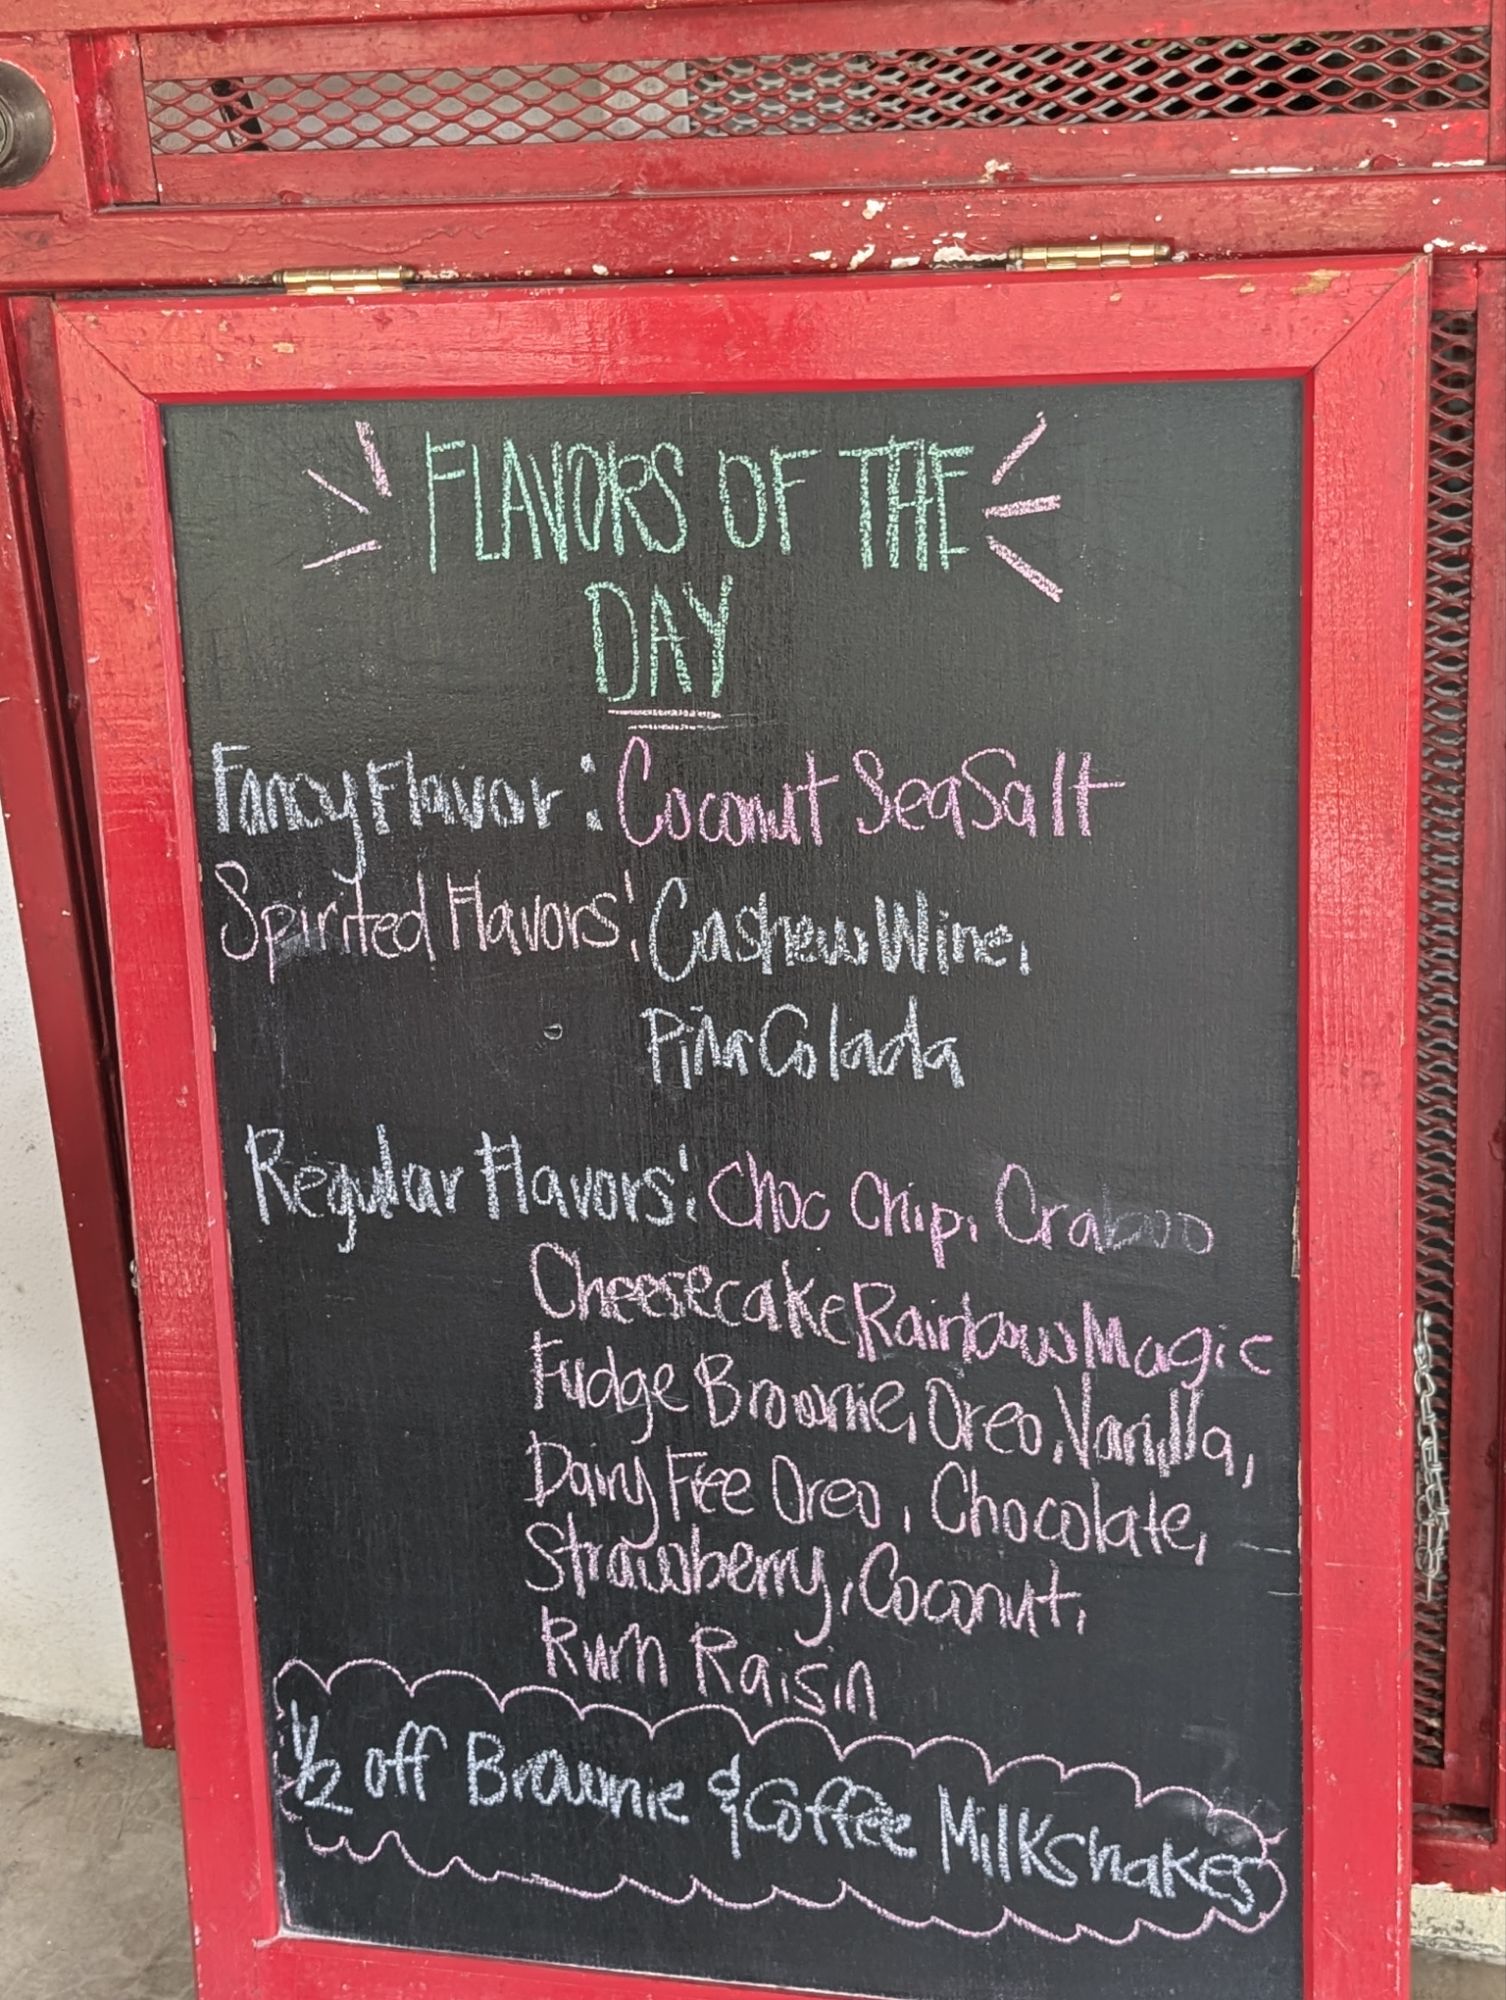 FLAVORS OF THE
DAY
Fancy Flavor: Coconut Sea Salt
Spirited Flavors: Cashew Wine,
Piña Colada
Regular Flavors: Choc Chip, Craboo
Cheesecake Rainbow Magic
Fudge Brownie, Oreo, Vanilla,
Dairy Free Oreo, Chocolate,
Strawberry, Coconut,
Rum Raisin
1/2 off Brownie & Coffee Milkshakes